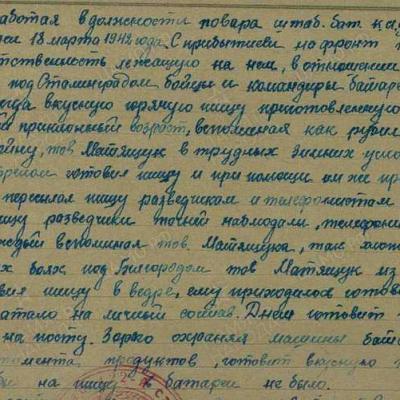 работая в должности повара штаб. бат. на
18 марта 1942 года. С прибытием на фронт
ответственность лежащую на нем, в отношении
под Сталинградом бойцы и командиры батаре
вкусную горячую пищу приготовленную
преклонный возраст, вспоминая как рубил
тов. Матящук в трудных зимних усло
готовил пищу и при помощи им же пр
пересылал пищу разведчикам и телефонистам
пищу разведчики точней наблюдали, телефони
вспоминал тов. Матящука, так
х боях, под Белгородом тов Матящук из
пищу в ведре, ему приходилось готов
хватало на личный состав. Днем готовит
на посту. Зорко охраняя машины бата
продуктов, готовит вкусную
на пищу в батареи не было.